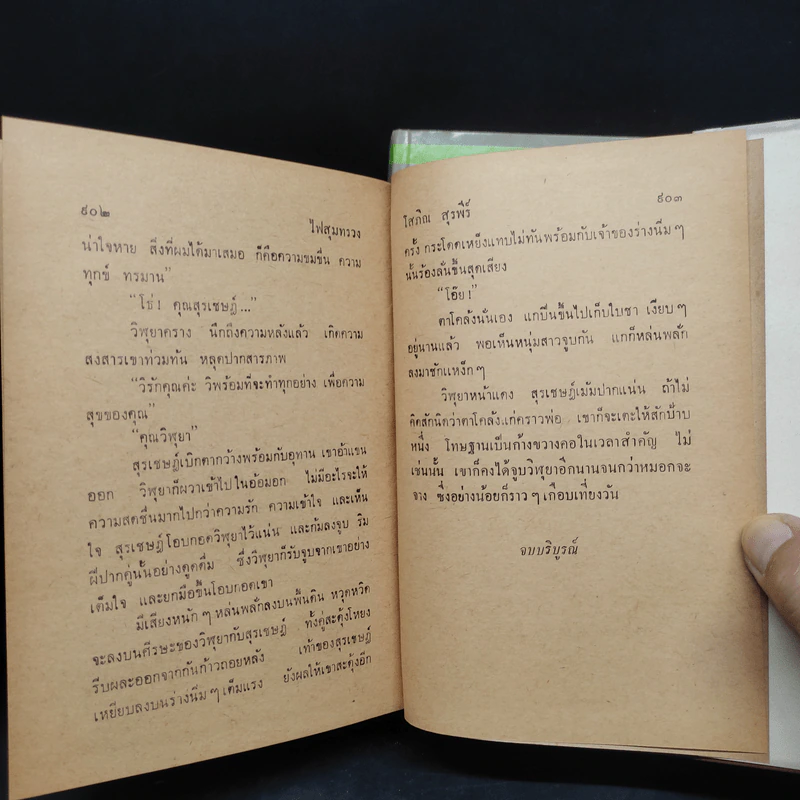 ๙๐๒
ไฟสุมทรวง
น่าใจหาย สิ่งที่ผมได้มาเสมอ ก็คือความขมขื่น ความ
ทุกข์ ทรมาน”
“โซ่! คุณสุรเชษฎ์...”
วิพุยาคราง นึกถึงความหลังแล้ว เกิดความ
สงสารเขาท่วมท้น หลุดปากสารภาพ
“วิรักคุณค่ะ วิพร้อมที่จะทำทุกอย่าง เพื่อความ
สุขของคุณ”
“คุณวิพุยา”
สุรเชษฎ์เบิกตากว้างพร้อมกับอุทาน เขาอ้าแขน
ออก วิพุยาก็ผวาเข้าไปในอ้อมอก ไม่มีอะไรจะให้
ความสดชื่นมากไปกว่าความรัก ความเข้าใจ และเห็น
ใจ สุรเชษฎ์โอบกอดวิพุยาไว้แน่น และก้มลงจูบ ริม
ฝีปากคู่นั้นอย่างดูดดื่ม ซึ่งวิพุยาก็รับจูบจากเขาอย่าง
เต็มใจ และยกมือขึ้นโอบกอดเขา
มีเสียงหนัก ๆ หล่นพลั่กลงบนพื้นดิน หวุดหวิด
จะลงบนศีรษะของวิพุยากับสุรเชษฎ์ ทั้งคู่สะดุ้งโหยง
รีบผละออกจากกันก้าวถอยหลัง เท้าของสุรเชษฎ์
เหยียบลงบนร่างนิ่ม ๆ เต็มแรง ยังผลให้เขาสะดุ้งอีก
โสภิณ สุรพีร์
๙๐๓
ครั้ง กระโดดเหย็งแทบไม่ทันพร้อมกับเจ้าของร่างนิ่ม ๆ
นั้นร้องลั่นขึ้นสุดเสียง
“โอ๊ย!”
ตาโคล้งนั่นเอง แกปีนขึ้นไปเก็บใบชา เงียบ ๆ
อยู่นานแล้ว พอเห็นหนุ่มสาวจูบกัน แกก็หล่นพลั่ก
ลงมาชักแหง็ก ๆ
วิพุยาหน้าแดง สุรเชษฎ์เม้มปากแน่น ถ้าไม่
คิดสักนิดว่าตาโคล้งแก่คราวพ่อ เขาก็จะเตะให้สักป้าบ
หนึ่ง โทษฐานเป็นก้างขวางคอในเวลาสำคัญ ไม่
เช่นนั้น เขาก็คงได้จูบวิพุยาอีกนานจนกว่าหมอกจะ
จาง ซึ่งอย่างน้อยก็ราว ๆ เกือบเที่ยงวัน
จบบริบูรณ์